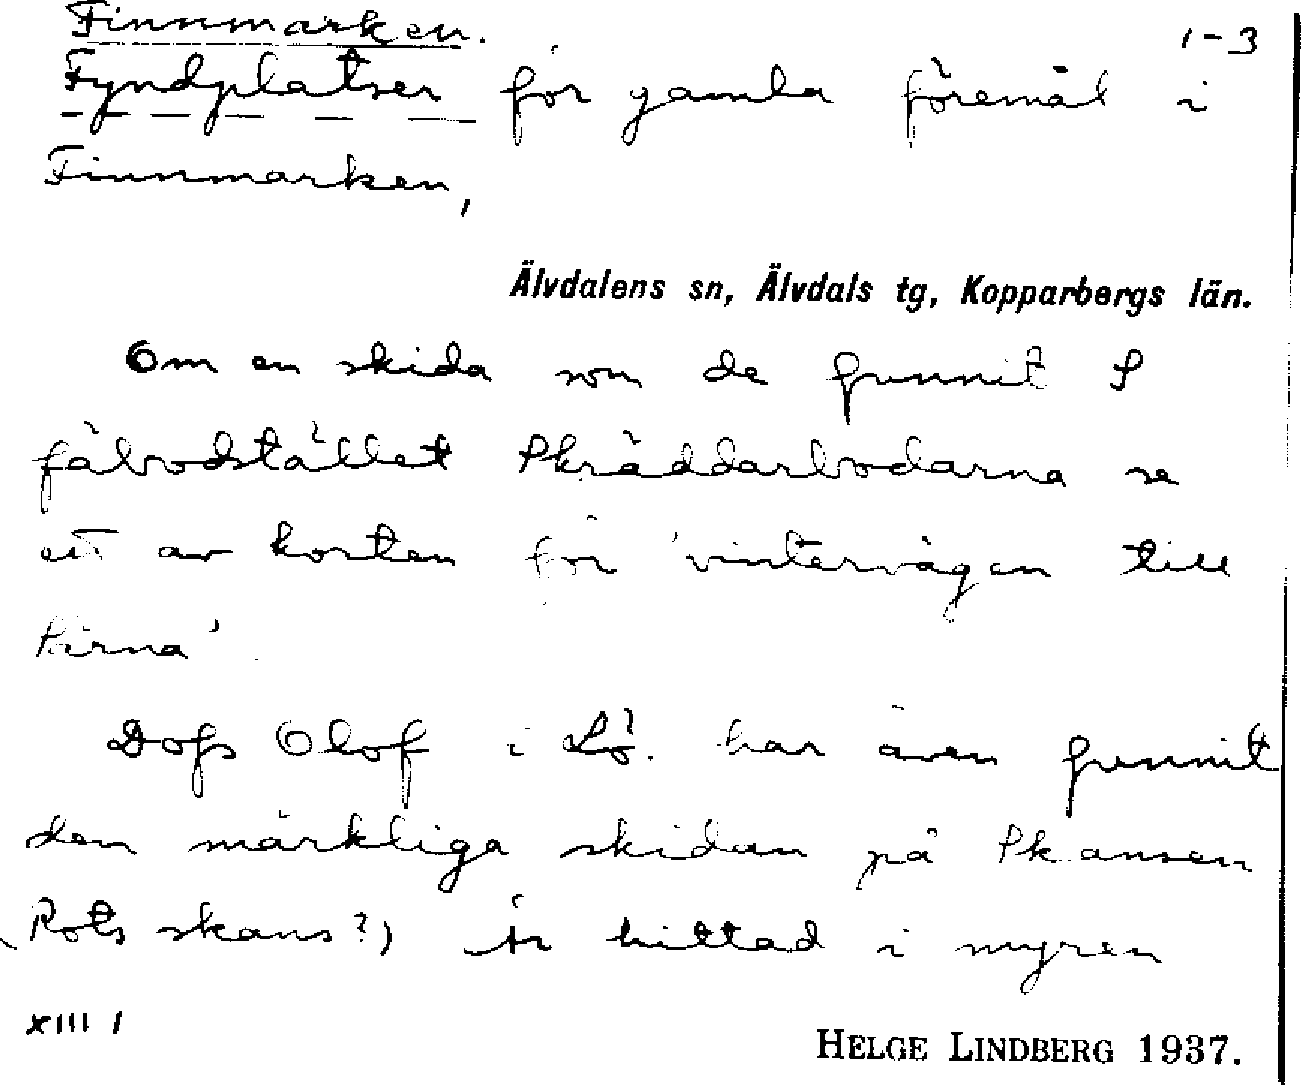 Finnmarken. 1-3
Fyndplatser för gamla föremål i
Finnmarken,
Älvdalens sn, Älvdals tg, Kopparbergs län.
Om en skida som de funnit S
fäbodstället Skräddarbodarna se
ett av korten för 'vintervägen till
Särna'
Dofs Olof i Lö. har även funnit
den märkliga skidan på Skansen
(Rots skans?) Är hittad i myren
XIII 1
HELGE LINDBERG 1937.